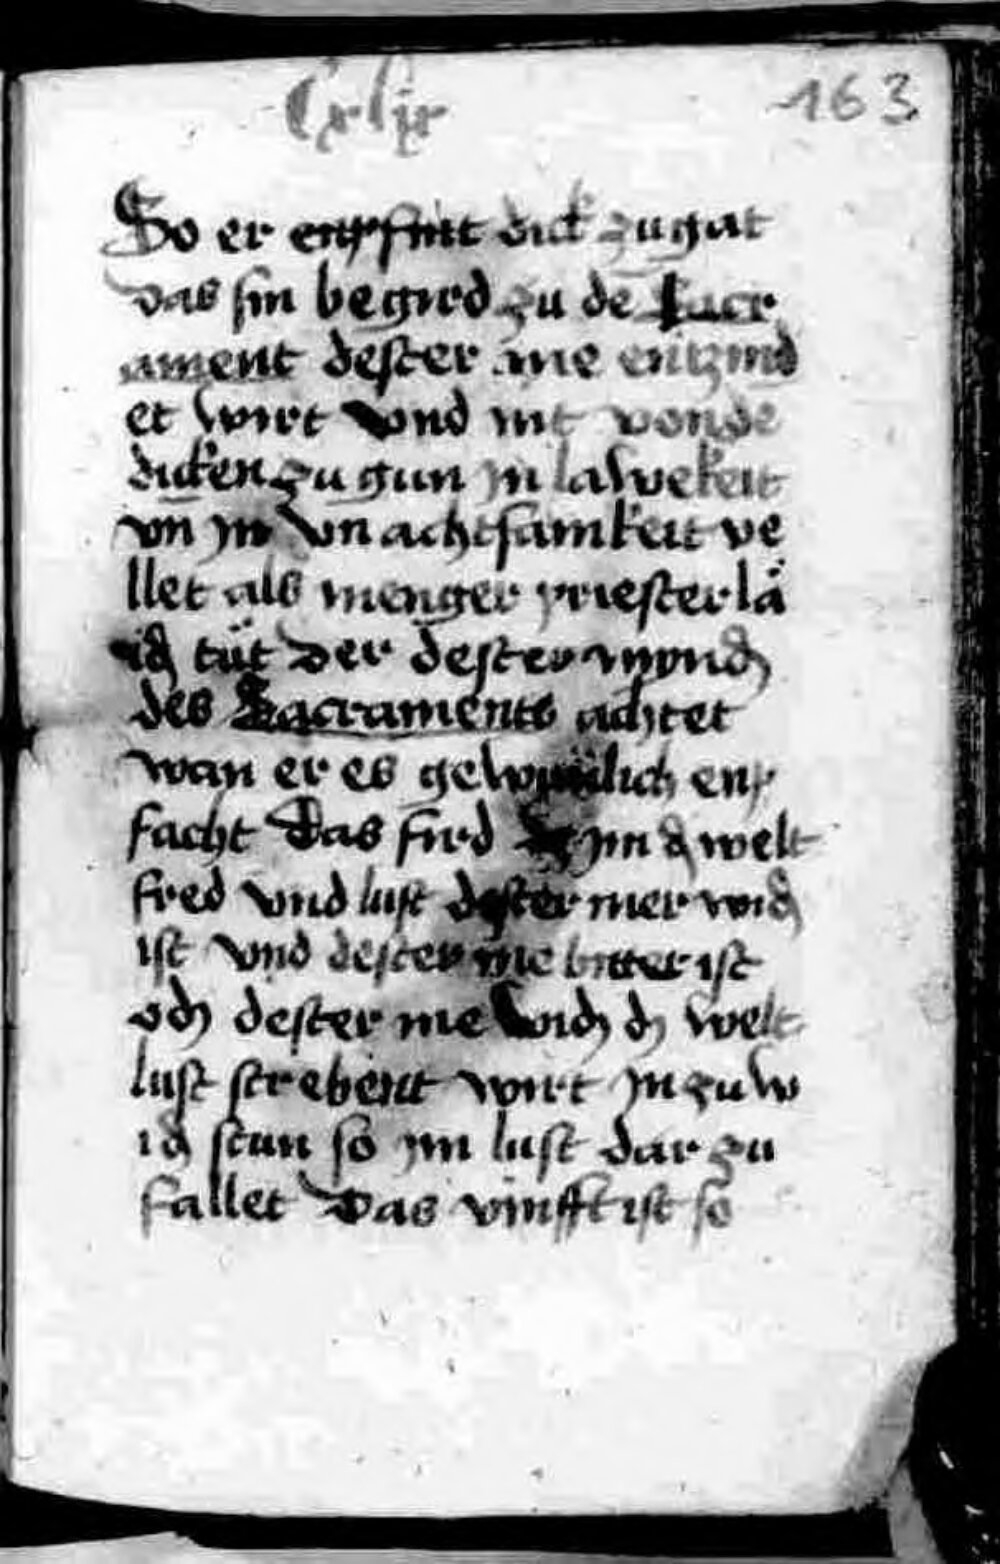 Cxlix 163
So er enpfint dick zu gat
das sin begird zu de sacr
ament dester me entzind
et wirt vnd nit von de
dicken zu gun in lawekeit
vn in vn achtsamkeit ve
llet als menger priester lä
id tüt der dester mynd
des Sacraments achtet
wan er es gewonlich enp
facht Das fird im d welt
fred vnd lust dester mer wid
ist vnd dester me bitter ist
och dester me wid d welt
lust strebent wirt in zu w
id stan so im lust dar zu
fallet Das vinfft ist so